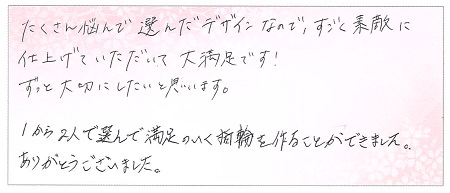 たくさん悩んで選んだデザインなので、すごく素敵に
仕上げていただいて大満足です!
ずっと大切にしたいと思います。
1から2人で選んで満足のいく指輪を作ることができました。
ありがとうございました。